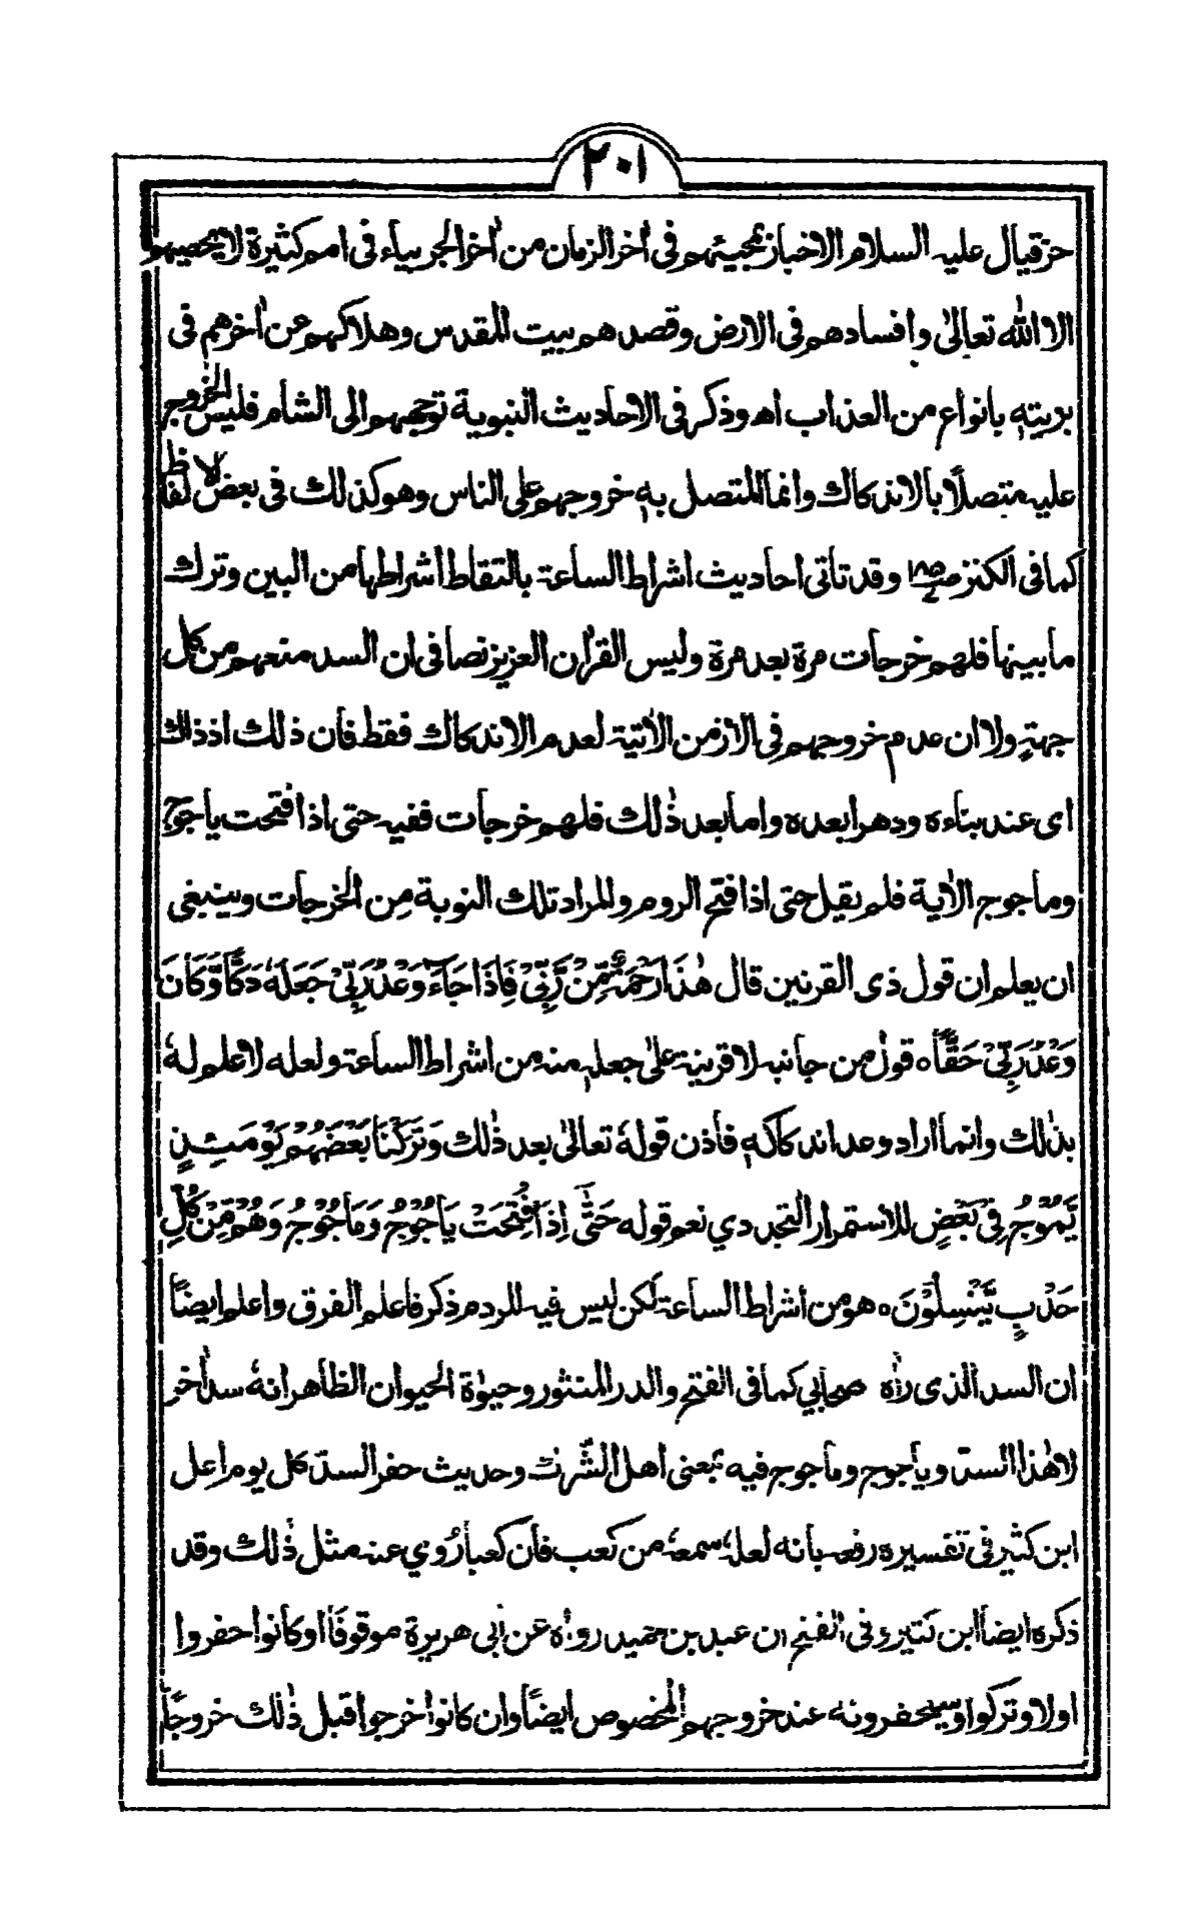 ٢٠١
حزقيال عليه السلام الاخبار بمجيئهم فى اٰخر الزمان من اٰخر الجربياء فى امم كثيرة لا يحصيهم
الا اللّٰه تعالىٰ وافسادهم فى الارض وقصدهم بيت المقدس وهلاكهم عن اٰخرهم فى
بريته بانواع من العذاب اه وذكر فى الاحاديث النبوية توجههم الى الشام فليس الخروج
عليه متصلاً بالاندكاك وانما المتصل به خروجهم على الناس وهو كذلك فى بعض الالفاظ
كما فى الكنز وقد تأتى احاديث اشراط الساعة بالتقاط اشراطها من البين وترك
ما بينها فلهم خرجات مرة بعد مرة وليس القراٰن العزيز نصا فى ان السد منعهم من كل
جهةٍ ولا ان عدم خروجهم فى الازمن الاٰتية لعدم الاندكاك فقط فان ذلك اذ ذاك
اى عند بناءه ودهرا بعده واما بعد ذٰلك فلهم خرجات ففيه حتى اذا فتحت ياجوج
وماجوج الاٰية فلم يقل حتى اذا فتح الروم والمراد تلك النوبة من الخرجات وينبغى
ان يعلم ان قول ذى القرنين قال هٰذَا رَحْمَةٌ مِّنْ رَّبِّىْ فَاِذَا جَآءَ وَعْدُ رَبِّىْ جَعَلَهٗ دَكَّآءَ وَكَانَ
وَعْدُ رَبِّىْ حَقًّا ٥ قول من جانبه لا قرينة علىٰ جعله منه من اشراط الساعة ولعله لا علم لهٗ
بذٰلك وانما اراد وعد اندكاكه فاذن قولهٗ تعالىٰ بعد ذٰلك وَتَرَكْنَا بَعْضَهُمْ يَوْمَئِذٍ
يَّمُوْجُ فِىْ بَعْضٍ للاستمرار التجددي نعم قوله حَتّٰٓى اِذَا فُتِحَتْ يَاْجُوْجُ وَمَاْجُوْجُ وَهُمْ مِّنْ كُلِّ
حَدَبٍ يَّنْسِلُوْنَ ٥ هو من اشراط الساعة لكن ليس فيه للردم ذكر فاعلم الفرق واعلم ايضاً
ان السد الذى راٰه صحابي كما فى الفتح والدر المنثور وحيوٰة الحيوان الظاهر انهٗ سد اٰخر
لا هٰذا السدّ وياجوج وماجوج فيه بمعنى اهل الشّر وحديث حفر السدّ كل يوم اعل
ابن كثير فى تفسيره رفعه بانه لعلهٗ سمعهٗ من كعب فان كعبا رُوي عنه مثل ذٰلك وقد
ذكره ايضا ابن كثير وفى الفتح ان عبد بن حميد رواه عن ابى هريرة موقوفًا او كانوا حفروا
اولا وتركوا وسيحفرونه عند خروجهم المخصوص ايضاً وان كانوا خرجوا قبل ذٰلك خروجًا